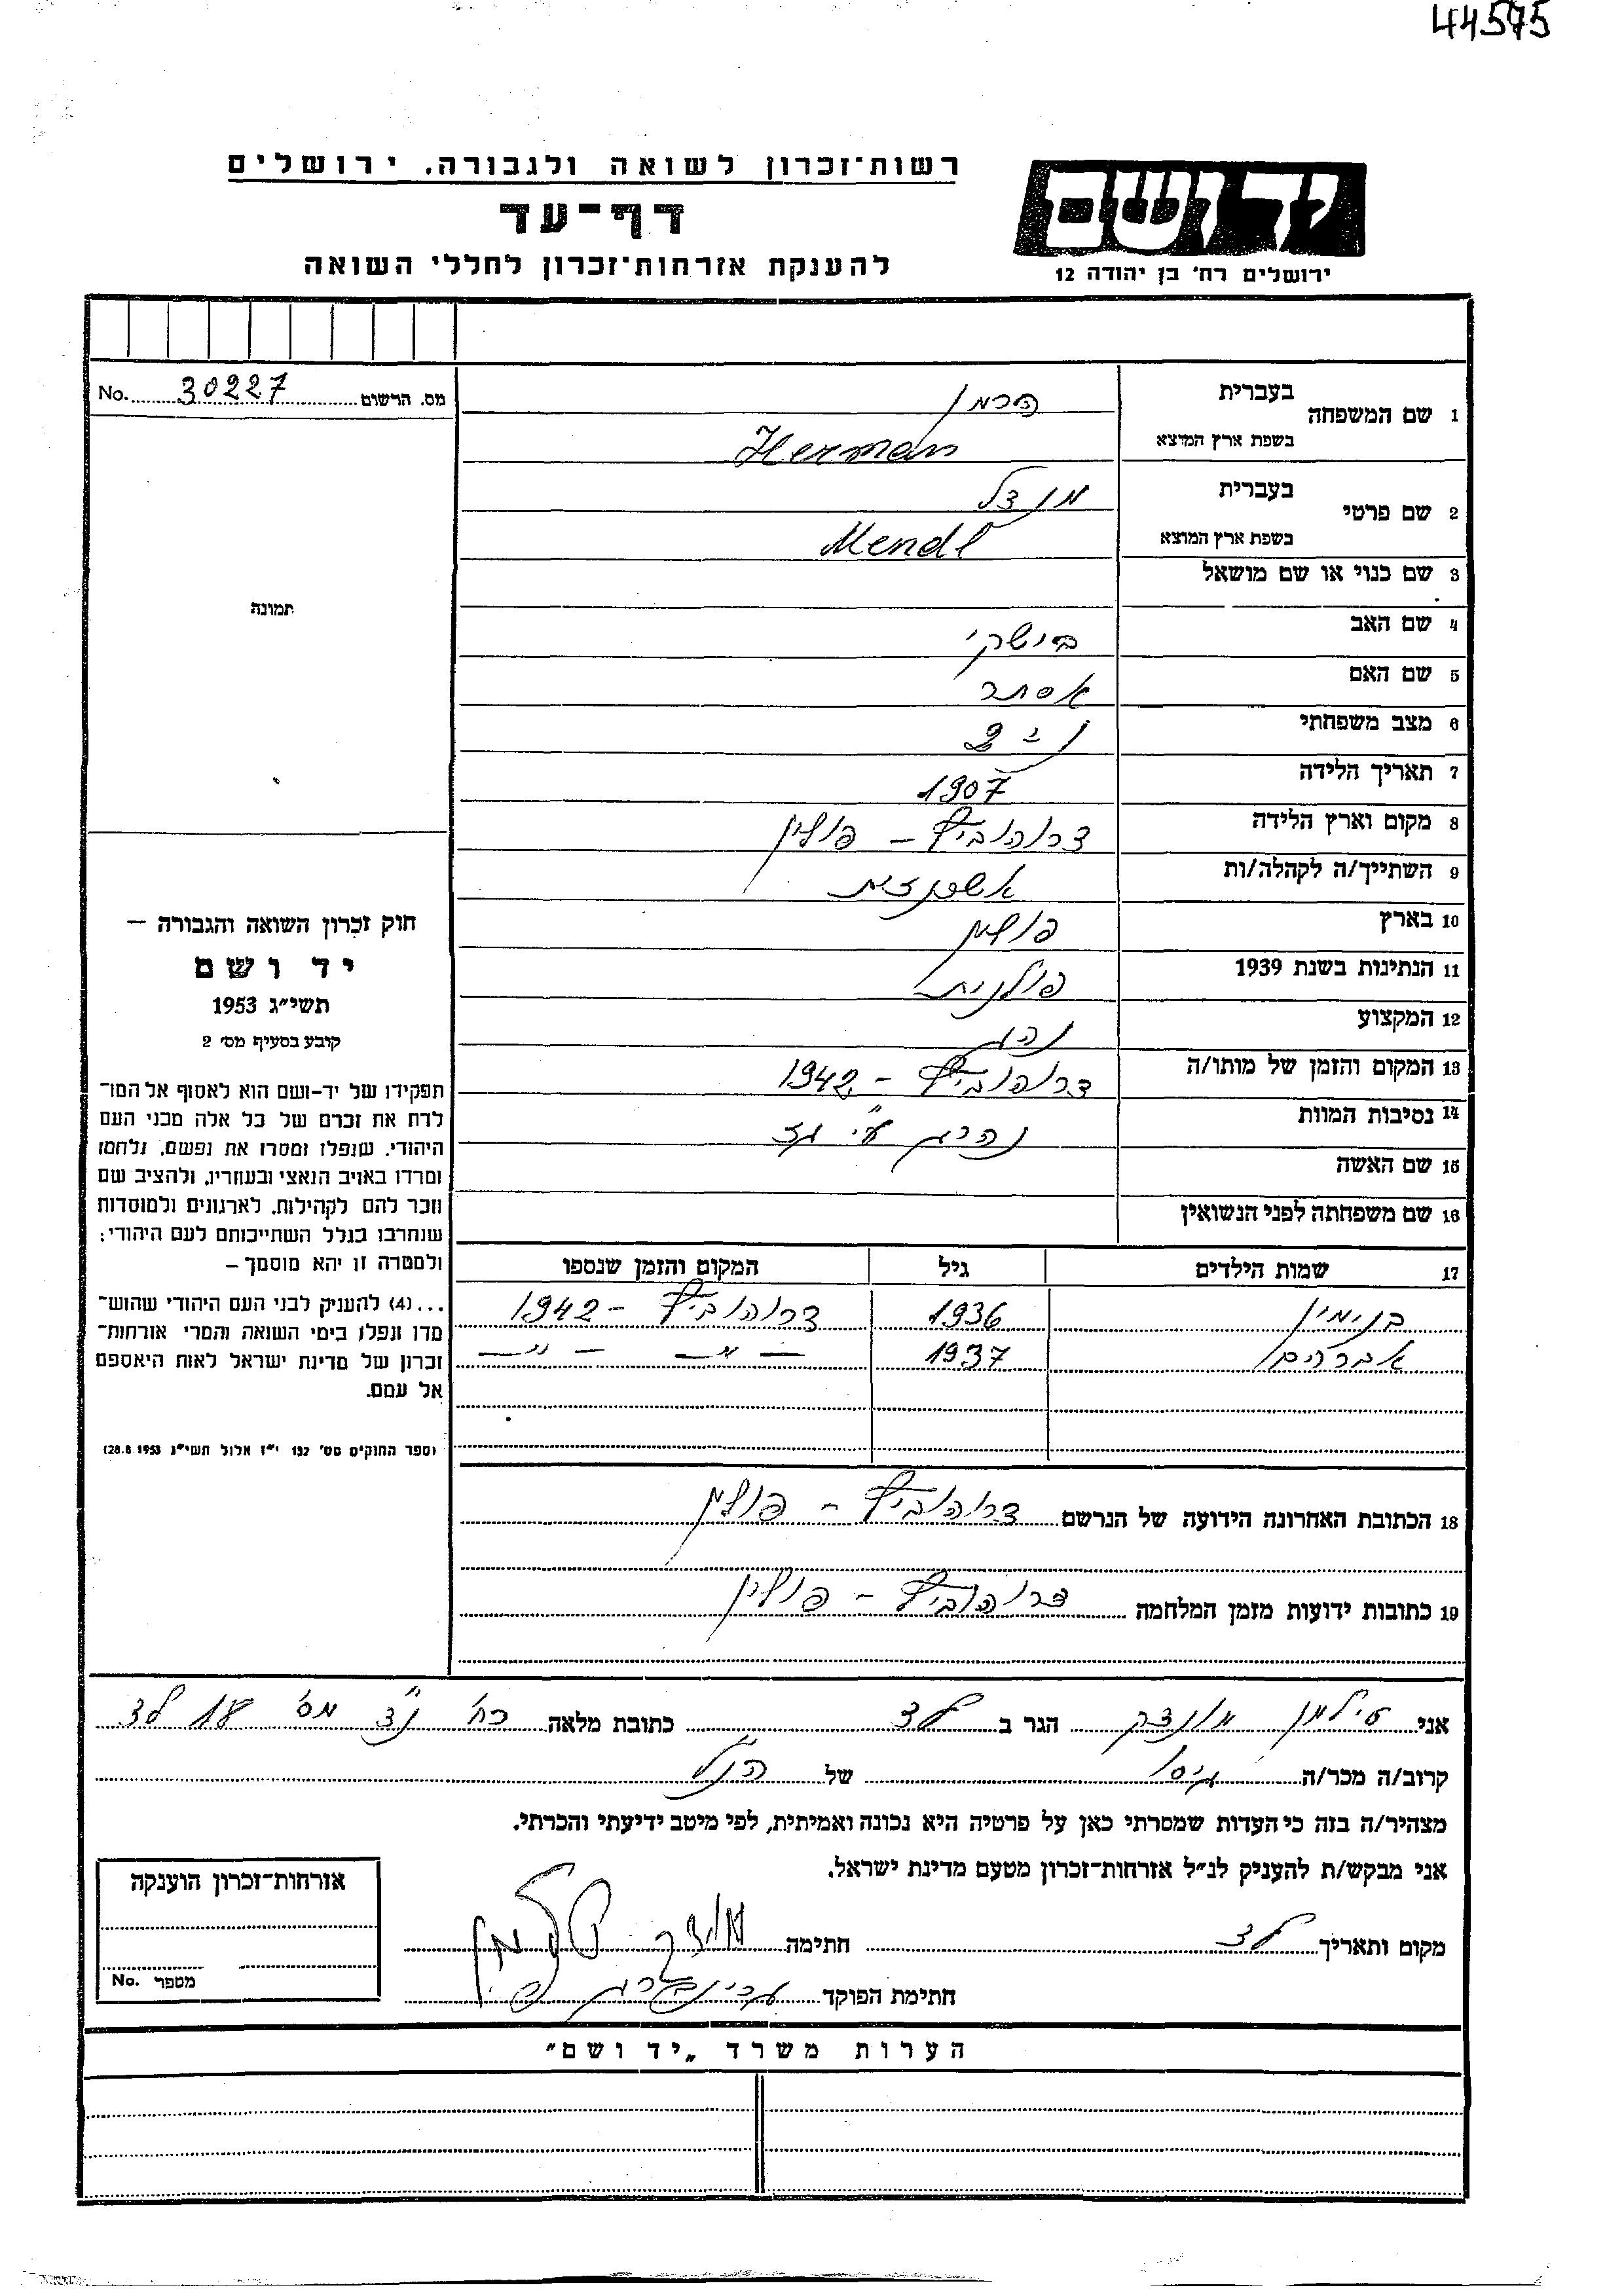 44575
רשות־זכרון לשואה ולגבורה, ירושלים
דף־עד
להענקת אזרחות־זכרון לחללי השואה
יד ושם
ירושלים רח' בן יהודה 12
מס. הרשום 30227 No.
תמונה
חוק זכרון השואה והגבורה –
יד ושם
תשי״ג 1953
קובע בסעיף מס׳ 2
תפקידו של יד־ושם הוא לאסוף אל המו־
לדת את זכרם של כל אלה מבני העם
היהודי, שנפלו ומסרו את נפשם, נלחמו
ומרדו באויב הנאצי ובעוזריו, ולהציב שם
וזכר להם לקהילות, לארגונים ולמוסדות
שנחרבו בגלל השתייכותם לעם היהודי;
ולמטרה זו יהא מוסמך –
...(4) להעניק לבני העם היהודי שהוש־
מדו ונפלו בימי השואה והמרי אזרחות־
זכרון של מדינת ישראל לאות היאספם
אל עמם.
(ספר החוקים מס׳ 132 י״ז אלול תשי״ג 28.8.1953)
1 שם המשפחה בעברית הרמן
בשפת ארץ המוצא Herman
2 שם פרטי בעברית מנדל
בשפת ארץ המוצא Mendl
3 שם כנוי או שם מושאל
4 שם האב
5 שם האם אסתר
6 מצב משפחתי
7 תאריך הלידה 1907
8 מקום וארץ הלידה דרוהוביץ – פולין
9 השתייך/ה לקהלה/ות אשכנזית
10 בארץ פולין
11 הנתינות בשנת 1939 פולנית
12 המקצוע נהג
13 המקום והזמן של מותו/ה דרוהוביץ – 1942
14 נסיבות המוות נהרג ע״י
15 שם האשה
16 שם משפחתה לפני הנשואין
17 שמות הילדים גיל המקום והזמן שנספו
בנימין 1936 דרוהוביץ – 1942
אברהם 1937 – ״ – – ״ –
18 הכתובת האחרונה הידועה של הנרשם דרוהוביץ – פולין
19 כתובות ידועות מזמן המלחמה דרוהוביץ – פולין
אני הגר ב לוד כתובת מלאה רח׳ מס׳ 18 לוד
קרוב/ה מכר/ה גיסו של הנ״ל
מצהיר/ה בזה כי העדות שמסרתי כאן על פרטיה היא נכונה ואמיתית, לפי מיטב ידיעתי והכרתי.
אני מבקש/ת להעניק לנ״ל אזרחות־זכרון מטעם מדינת ישראל.
מקום ותאריך לוד חתימה
חתימת הפוקד
אזרחות־זכרון הוענקה
מספר No.
הערות משרד „יד ושם״